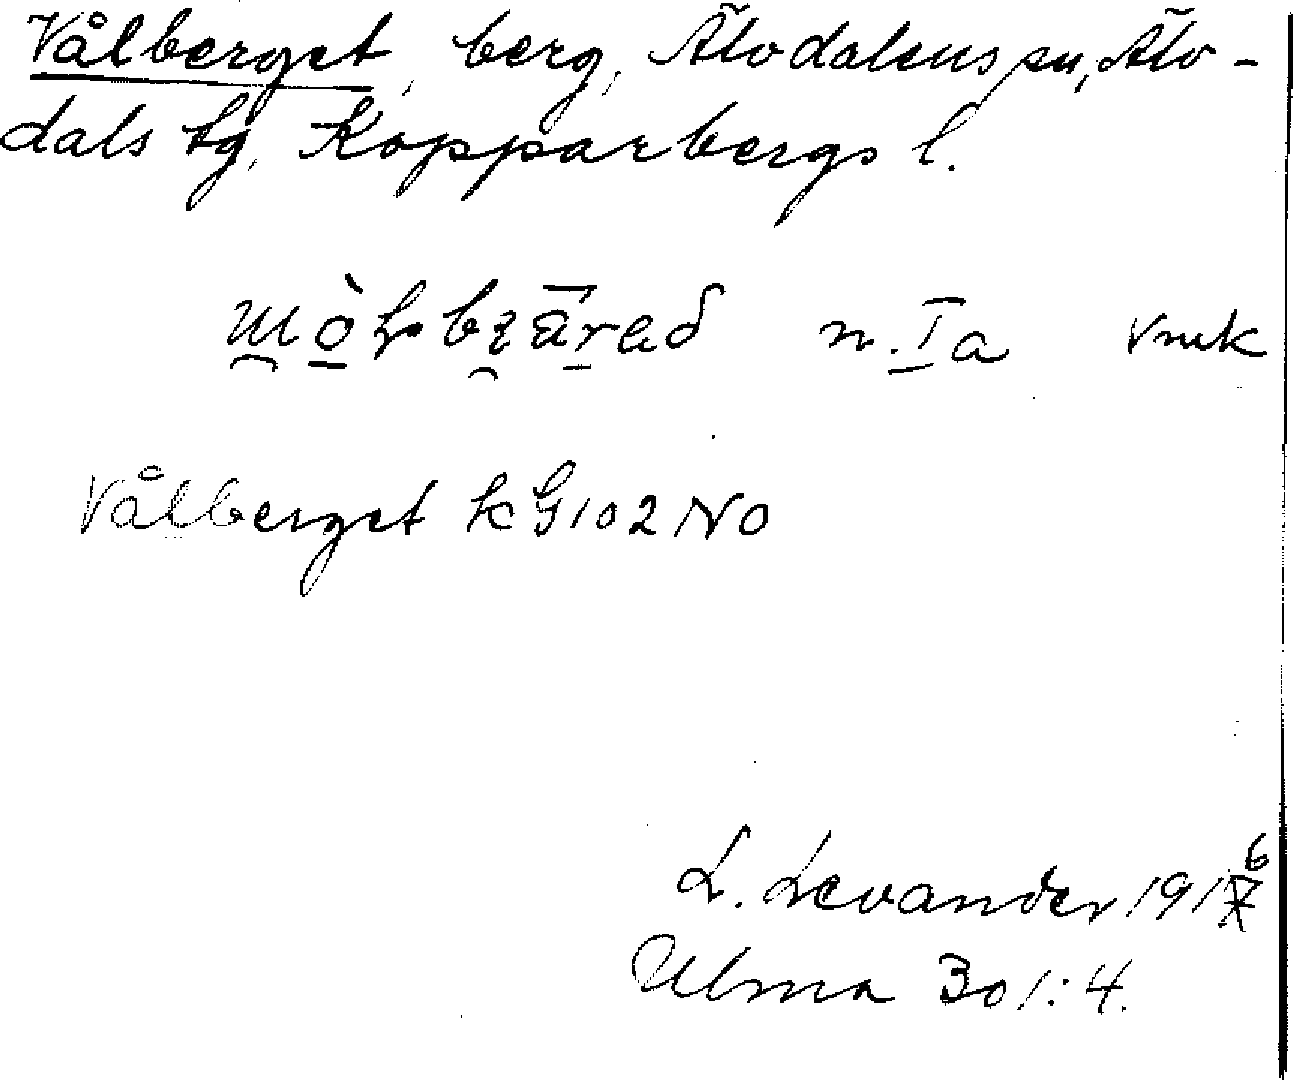 Vålberget, berg, Älvdalens sn, Älv-
dals tg, Kopparbergs l.
n. I a vnk
Vålberget k G 102 NO
L. Levander 1916
Ulma 301:4.